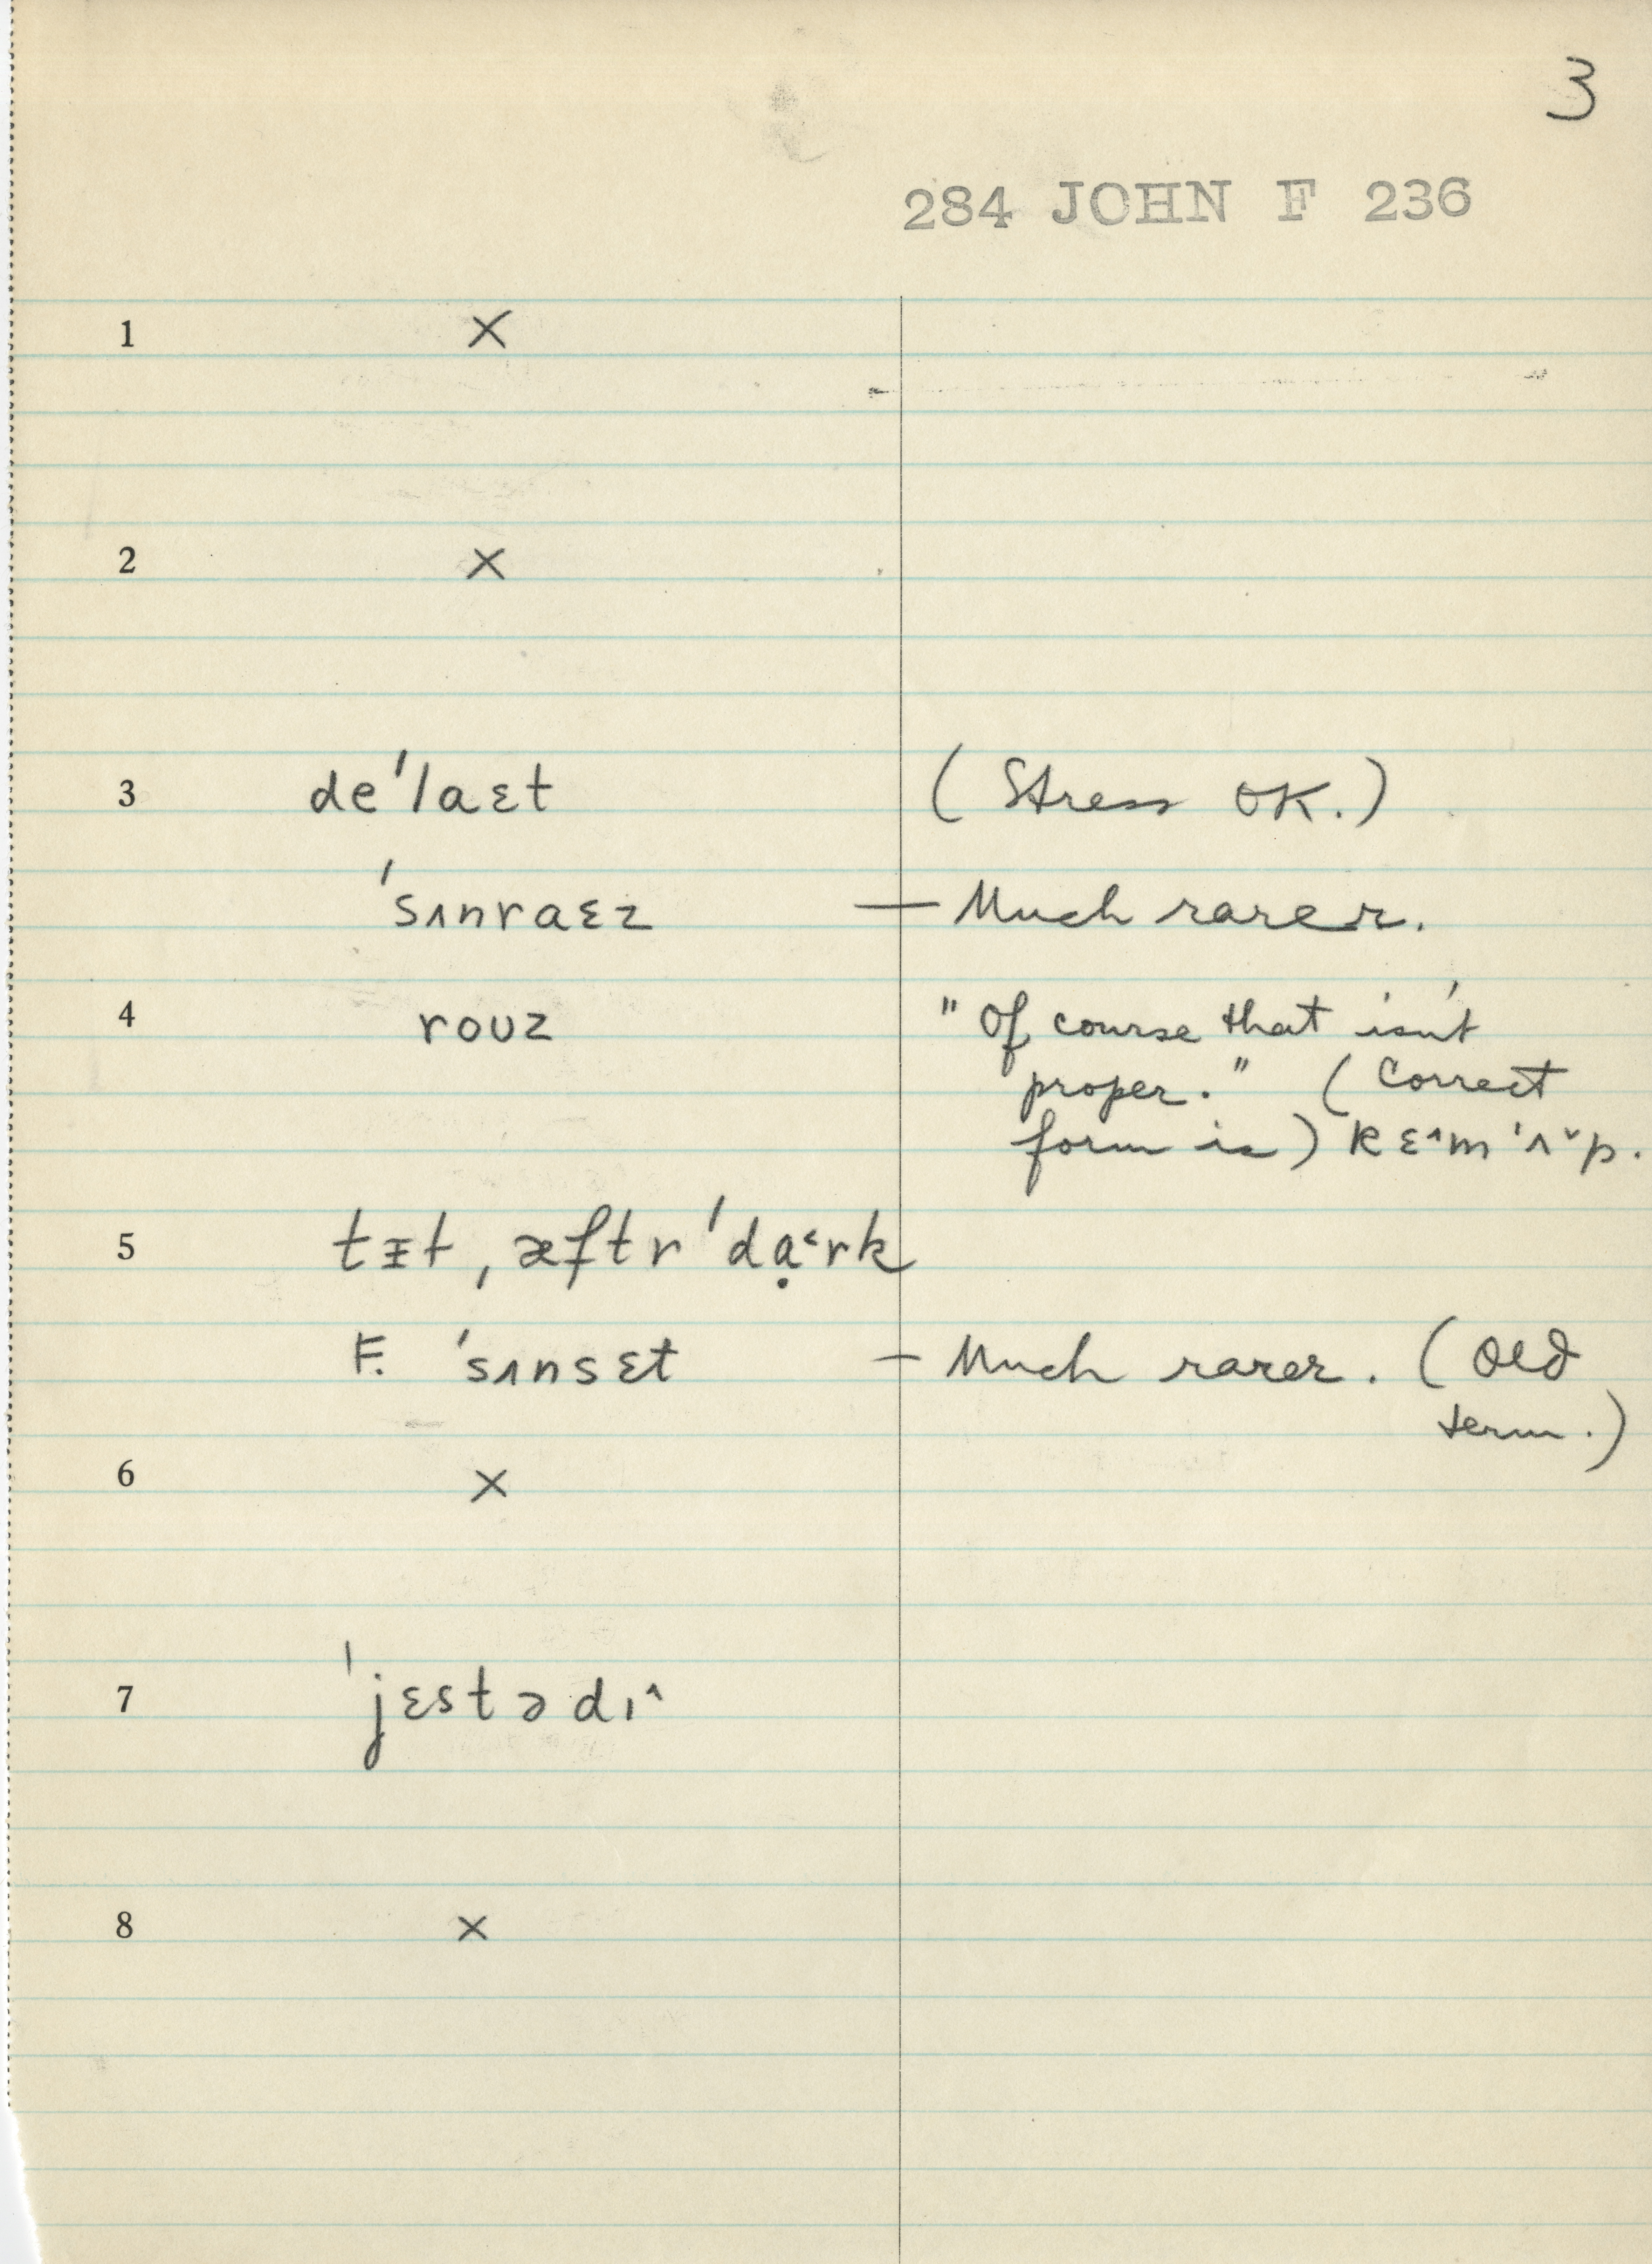 3
284 JOHN F 236
1 ×
2 ×
3 deˈlaɛt (Stress OK.)
ˈsʌnraɛz — Much rarer.
4 roʊz "Of course that isn't
proper." (Correct
form is) kɛ^m ˈʌˇp.
5 tɪt, æftr ˈdɑ̣˂rk
F. ˈsʌnsɛt — Much rarer. (Old
term.)
6 ×
7 ˈjɛstədɪ^
8 ×